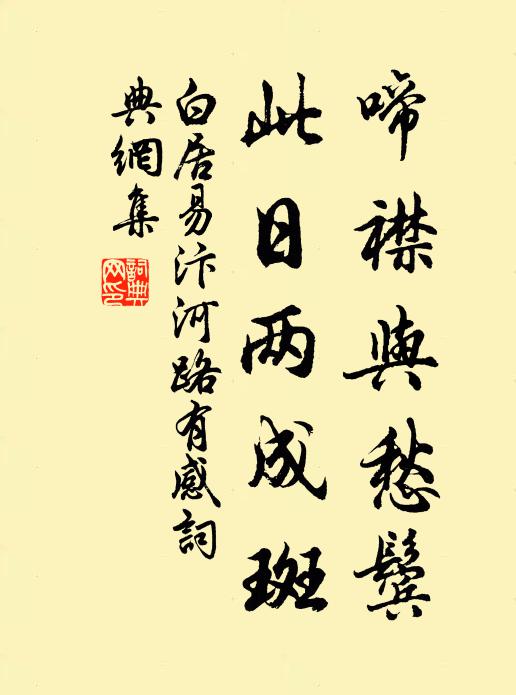 啼襟與愁鬢
此日兩成斑
白居易汴河路有感詞
典網集
詞典網印